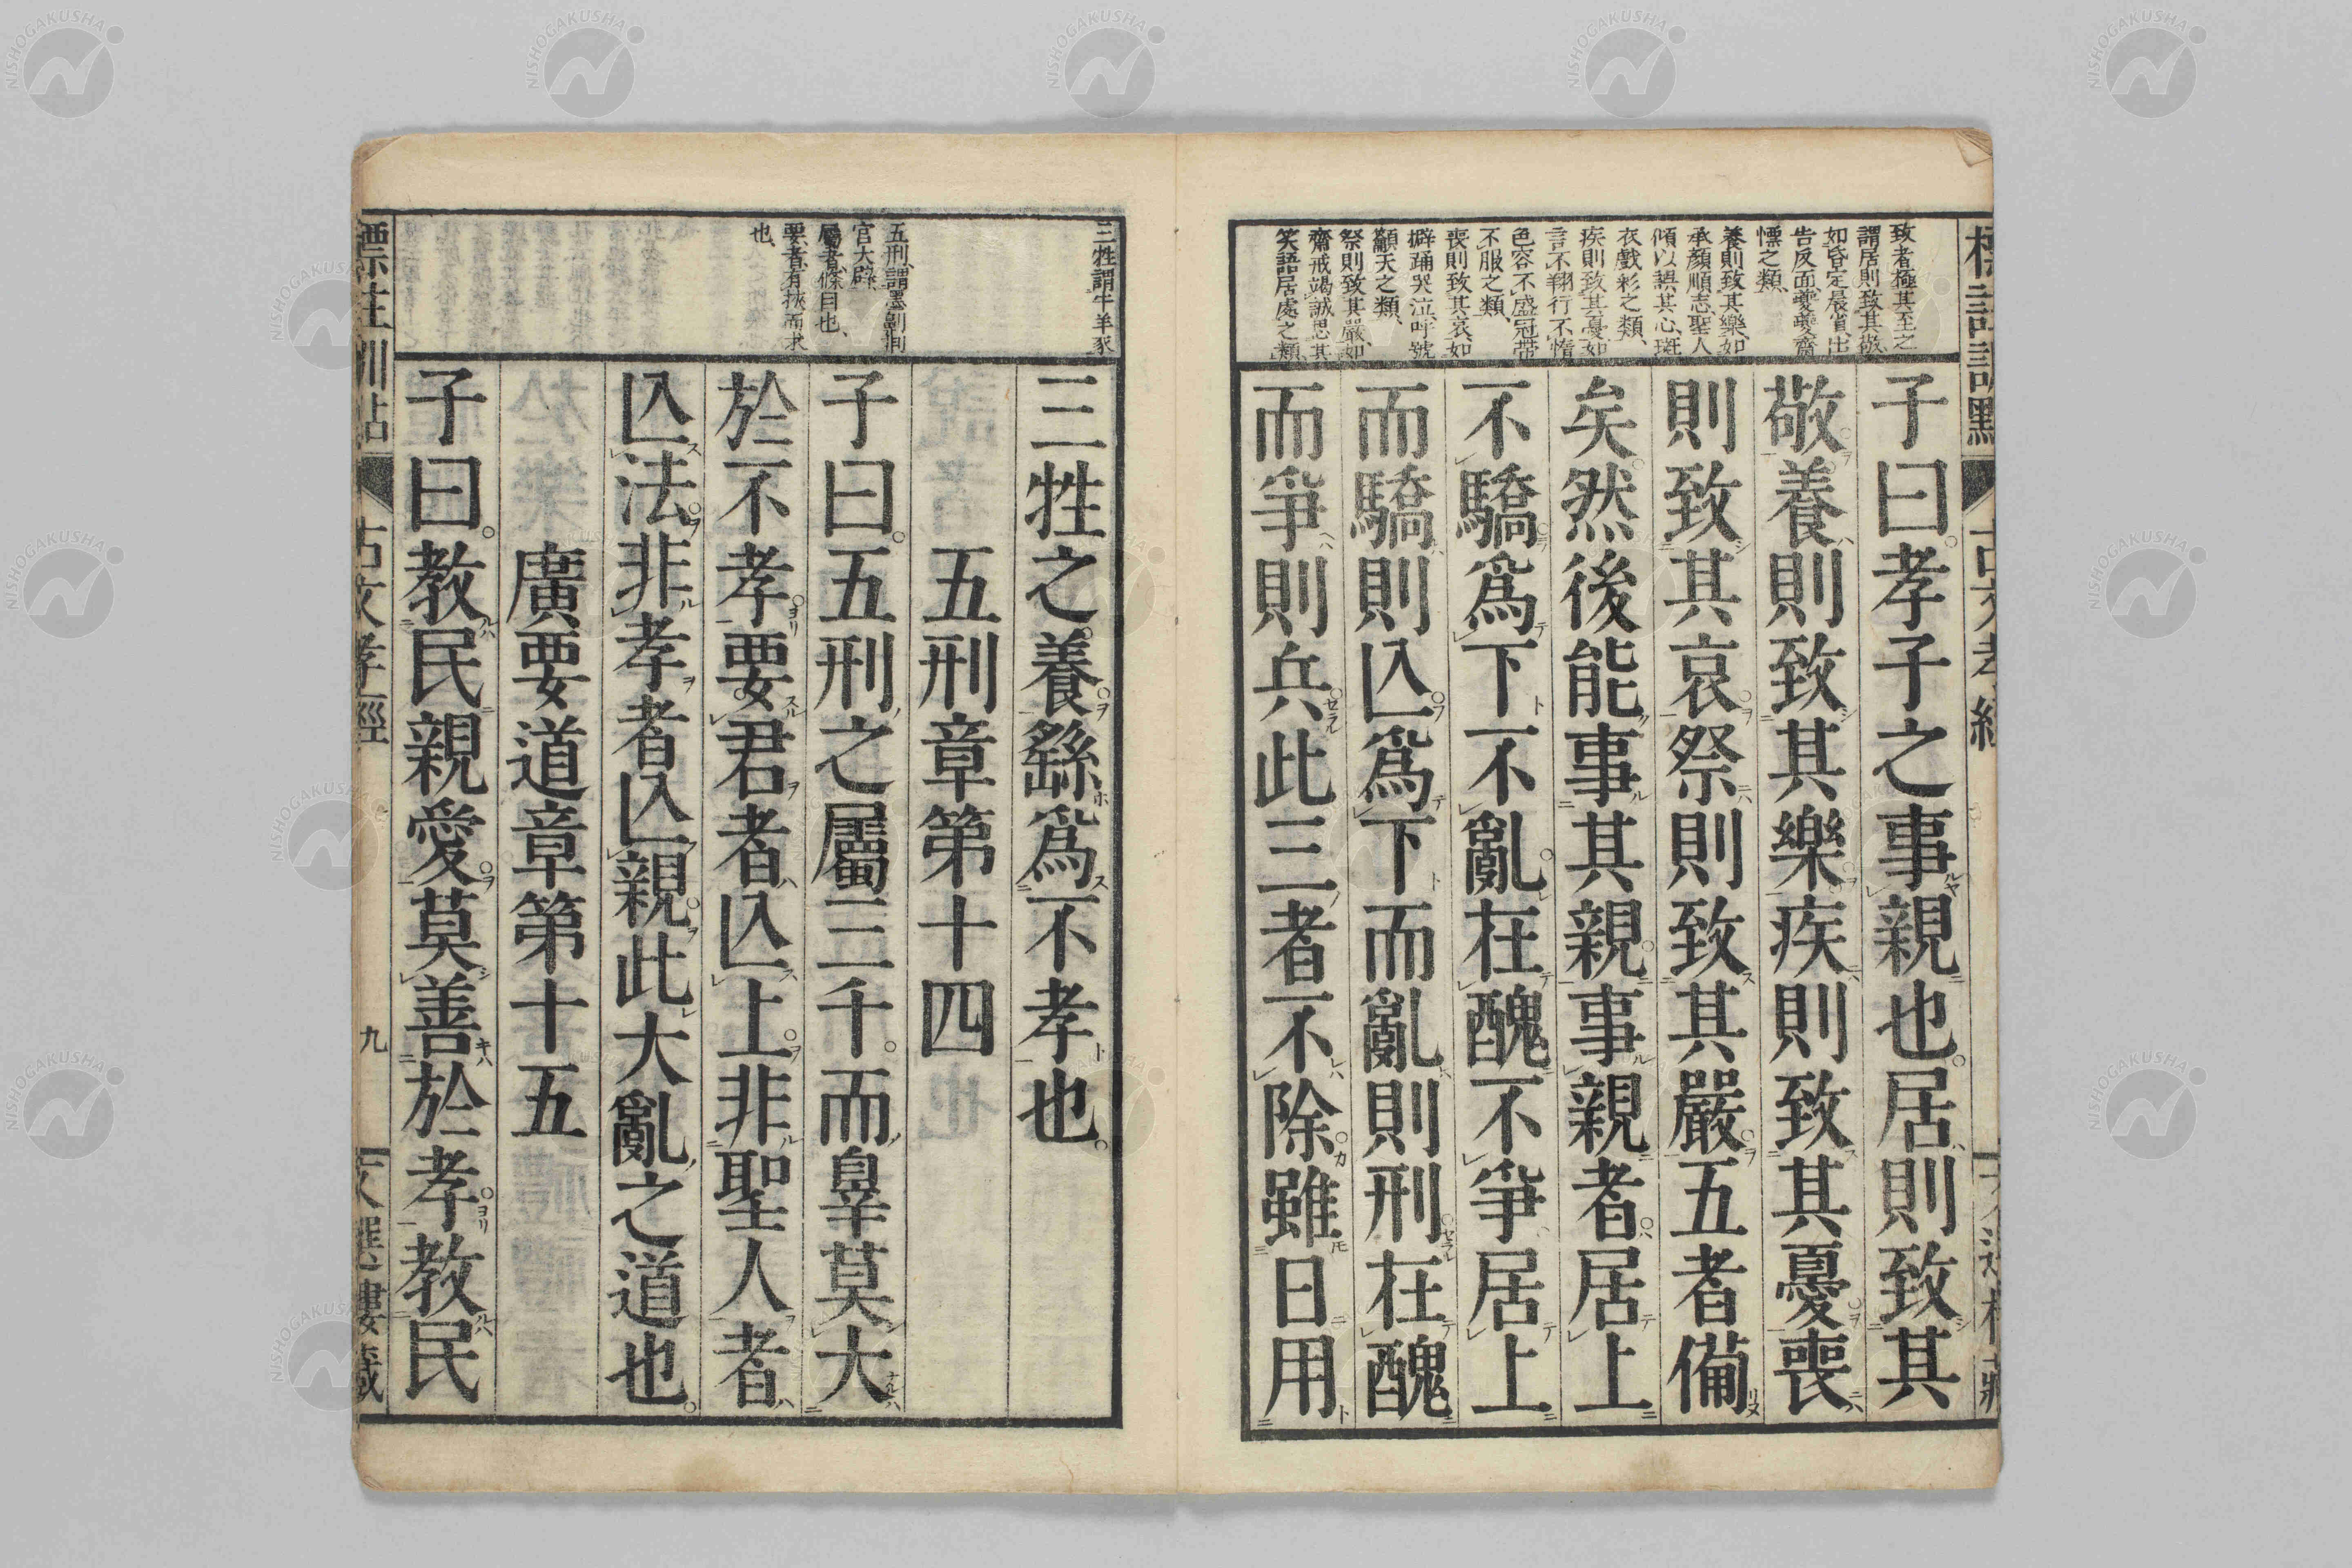 致者極其至之
謂居則致其敬、
如昏定晨省、出
告反面夔夔齋
慄之類、
養則致其樂、如
承顏順志、聖人
傾以誤其心、斑
衣戲彩之類、
疾則致其憂如
言不翔行不惰
色容不盛冠帶
不服之類、
喪則致其哀如
擗踊哭泣呼號
籲天之類、
祭則致其嚴、如
齋戒竭誠思其
笑語居處之類、
子曰。孝子之事親也。居則致其
敬養則致其樂疾則致其憂喪
則致其哀祭則致其嚴五者備
矣然後能事其親事親者居上
不驕爲下不亂在醜不爭居上
而驕則亾爲下而亂則刑在醜
而爭則兵此三者不除雖日用
三牲謂牛羊豕
五刑謂墨劓剕
宮大辟、
屬者條目也、
要者有挾而求
也、
三牲之養繇爲不孝也。
五刑章第十四
子曰。五刑之屬三千。而辠莫大
於不孝要君者亾上非聖人者
亾法非孝者亾親此大亂之道也。
廣要道章第十五
子曰。教民親愛莫善於孝教民
標註訓點
古文孝經
九
文選樓藏